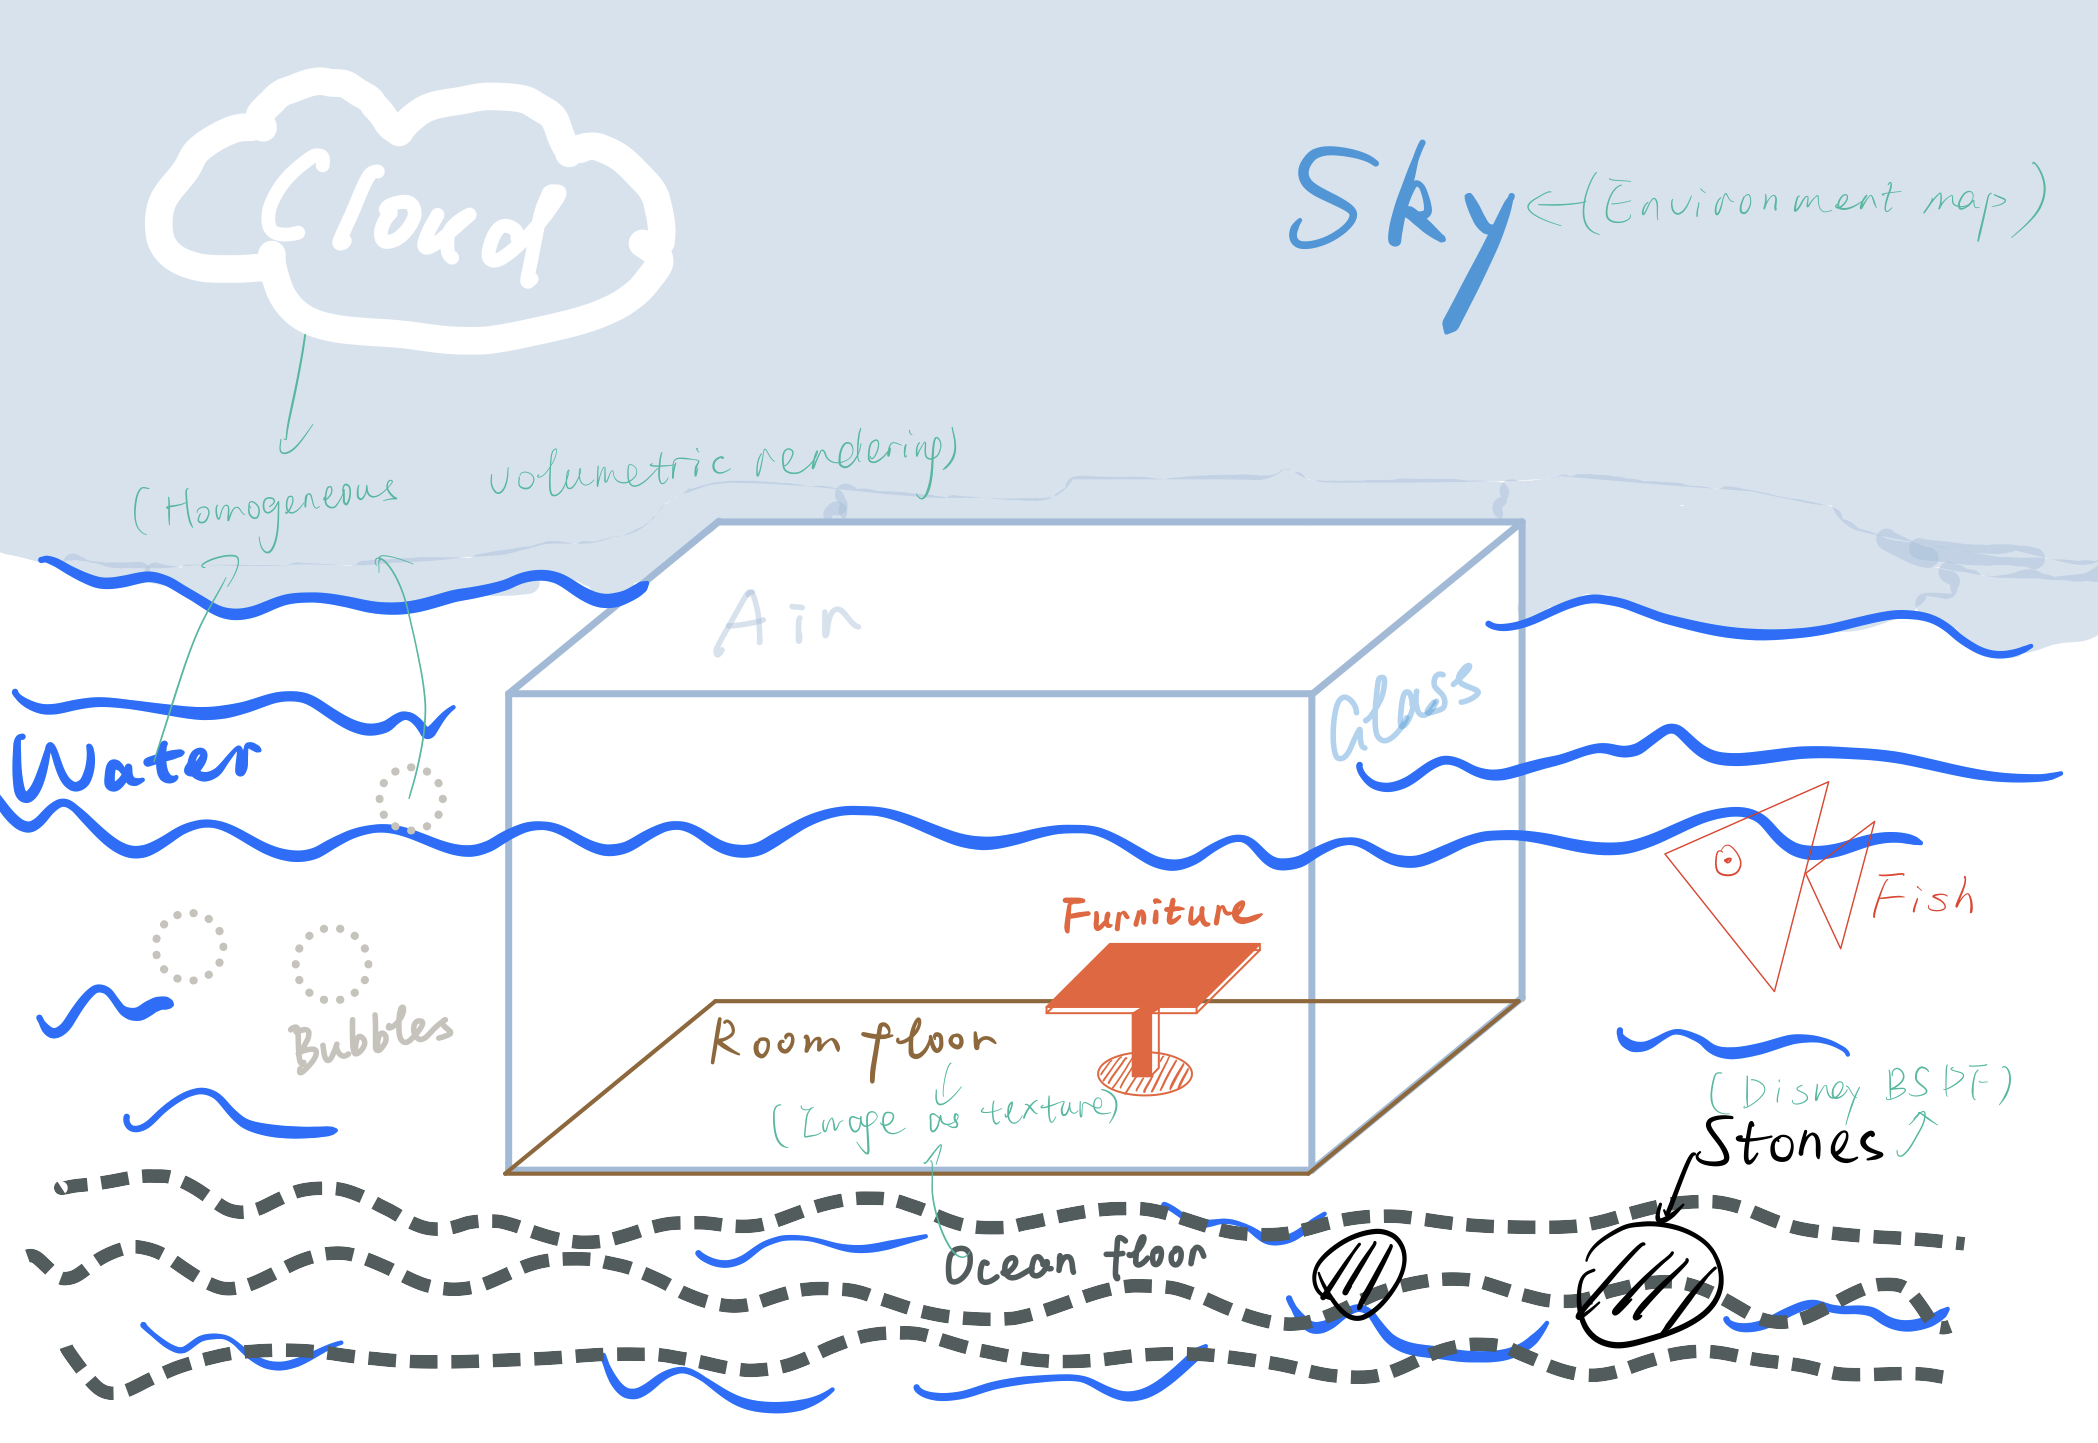 Cloud
Sky ← (Environment map)
(Homogeneous volumetric rendering)
Air
Glass
Water
Furniture
Fish
Bubbles
Room floor
(Image as texture)
(Disney BSDF)
Stones
Ocean floor